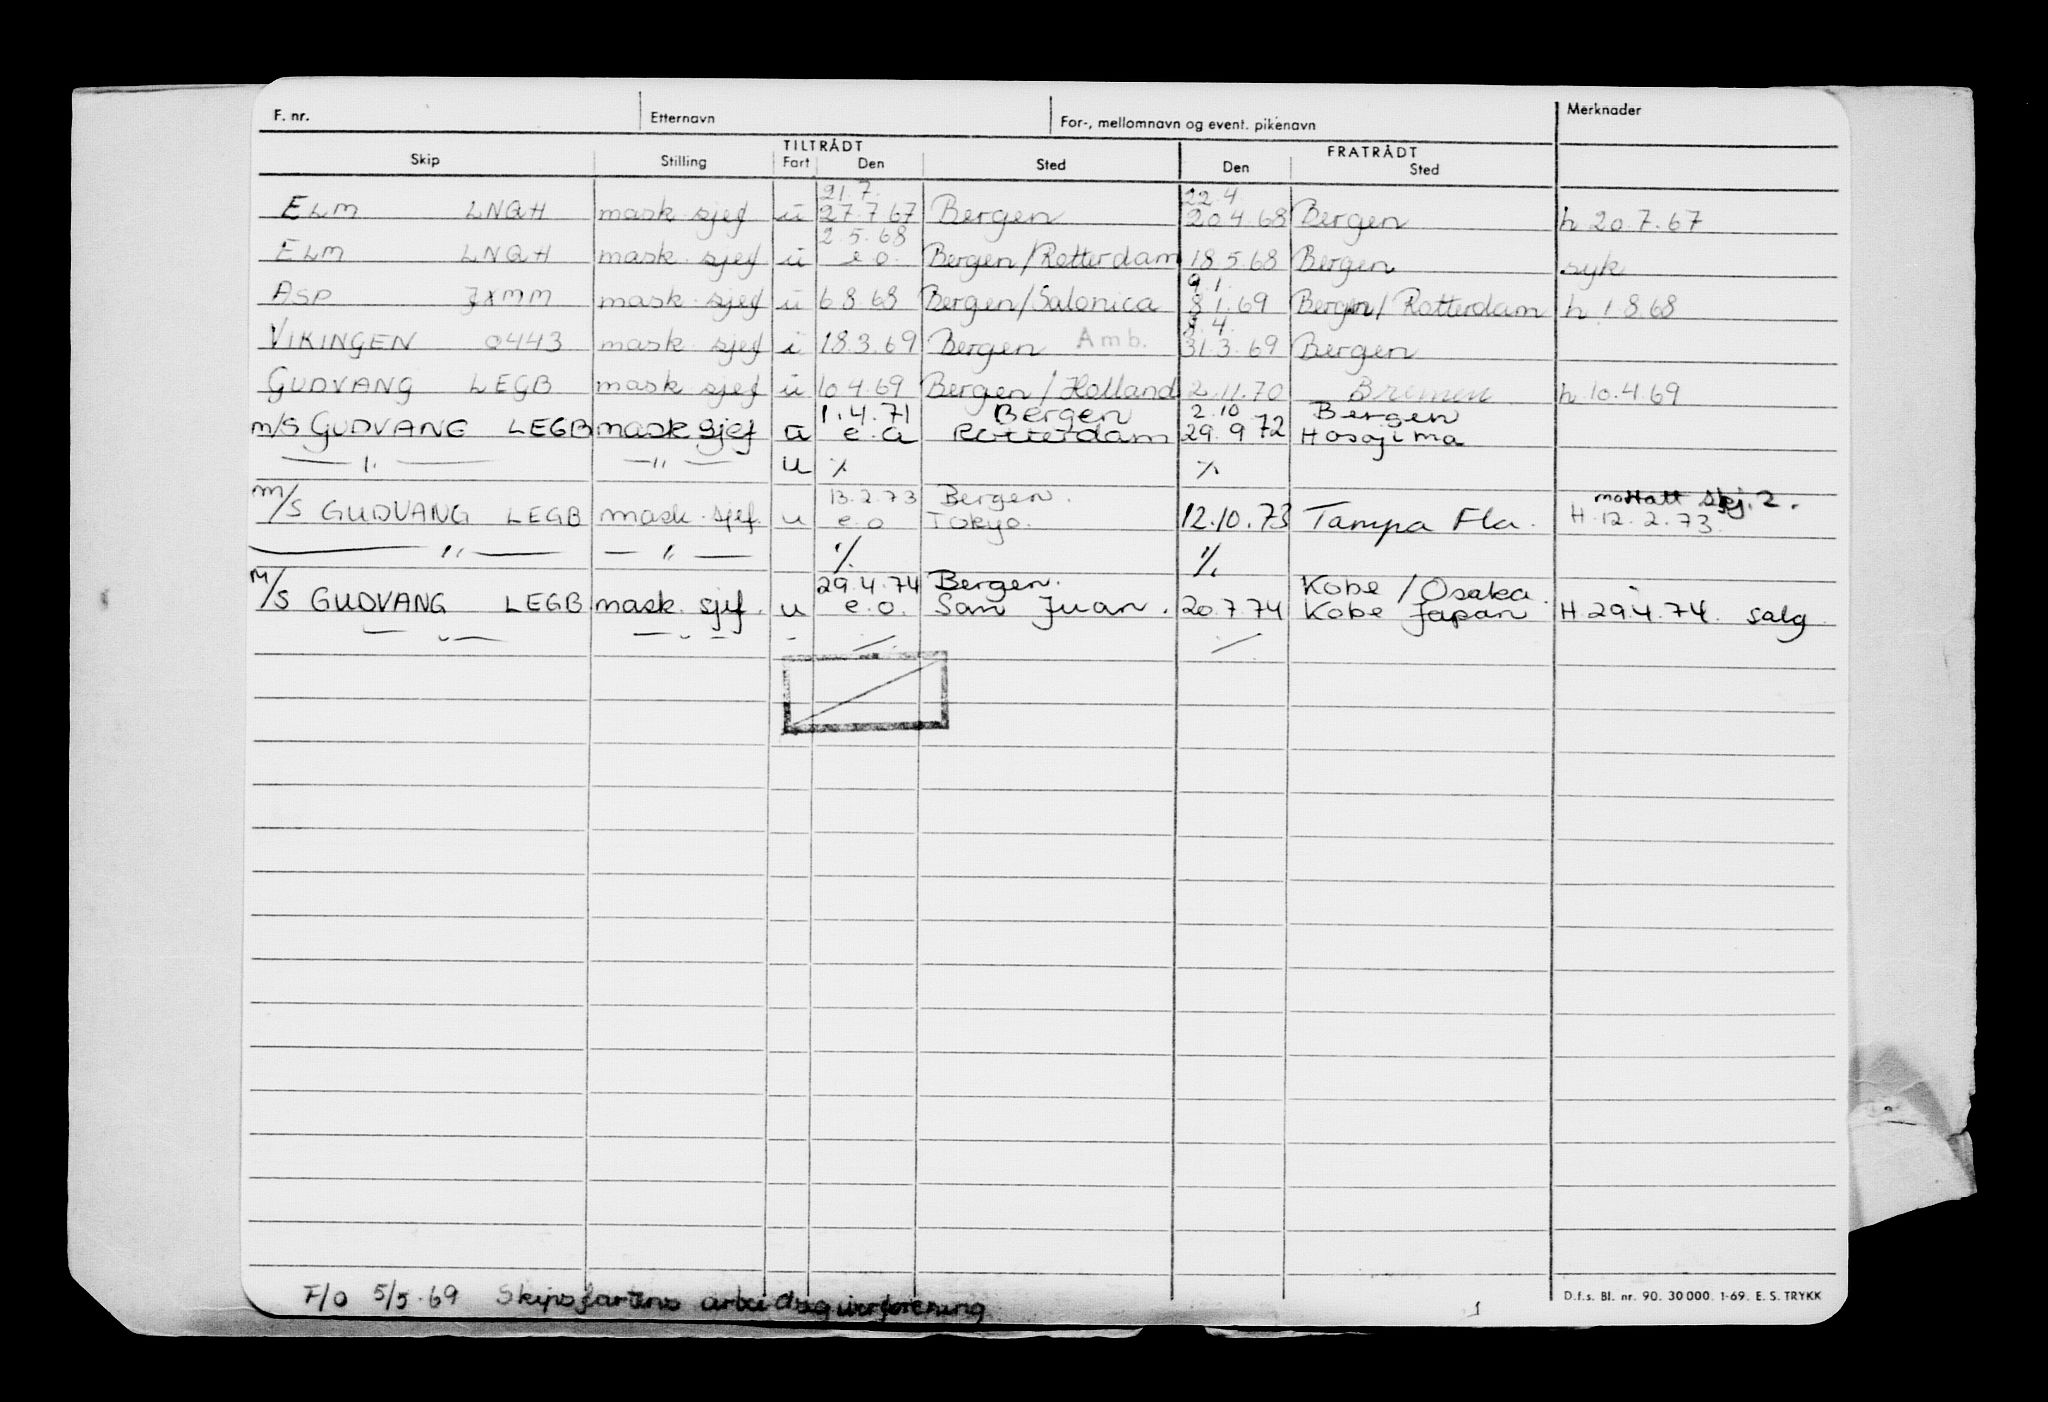 F. nr. Etternavn For-, mellomnavn og event. pikenavn Merknader
TILTRÅDT FRATRÅDT
Skip Stilling Fart Den Sted Den Sted
21.7. 22.4
ELM LNQH mask sjef u 27.7.67 Bergen 20.4.68 Bergen h 20.7.67
2.5.68
ELM LNQH mask sjef u e.o. Bergen/Rotterdam 18.5.68 Bergen syk
9.1.
ASP JXMM mask sjef u 6.8.68 Bergen/Salonica 8.1.69 Bergen/Rotterdam h 1.8.68
8.4.
VIKINGEN 0443 mask sjef i 18.3.69 Bergen Amb. 31.3.69 Bergen
GUDVANG LEGB mask sjef u 10.4.69 Bergen/Holland 2.11.70 Bremen h.10.4.69
1.4.71 Bergen 2.10 Bergen
m/s GUDVANG LEGB mask sjef u e.o Rotterdam 29.9.72 Hosojima
—"— —"— u ٪ ٪
13.2.73 Bergen. mottatt skj. 2.
m/s GUDVANG LEGB mask.sjef. u e.o Tokyo. 12.10.73 Tampa Fla. H.12.2.73.
—"— —"— ٪ ٪
29.4.74 Bergen. Kobe/Osaka.
M/S GUDVANG LEGB mask.sjef. u e.o. San Juan. 20.7.74 Kobe Japan H 29.4.74. salg
—"— —"— -
F/O 5/5.69 Skipsfartens arbeidsgiverforening
1
D.f.s. Bl. nr. 90. 30 000. 1-69. E. S. TRYKK